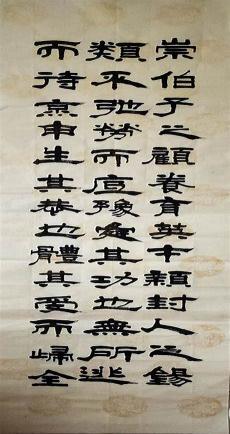 崇伯子之顧養育英才穎封人之錫
類不弛勞而底豫舜其功也無所逃
而待烹申生其恭也體其受而歸全